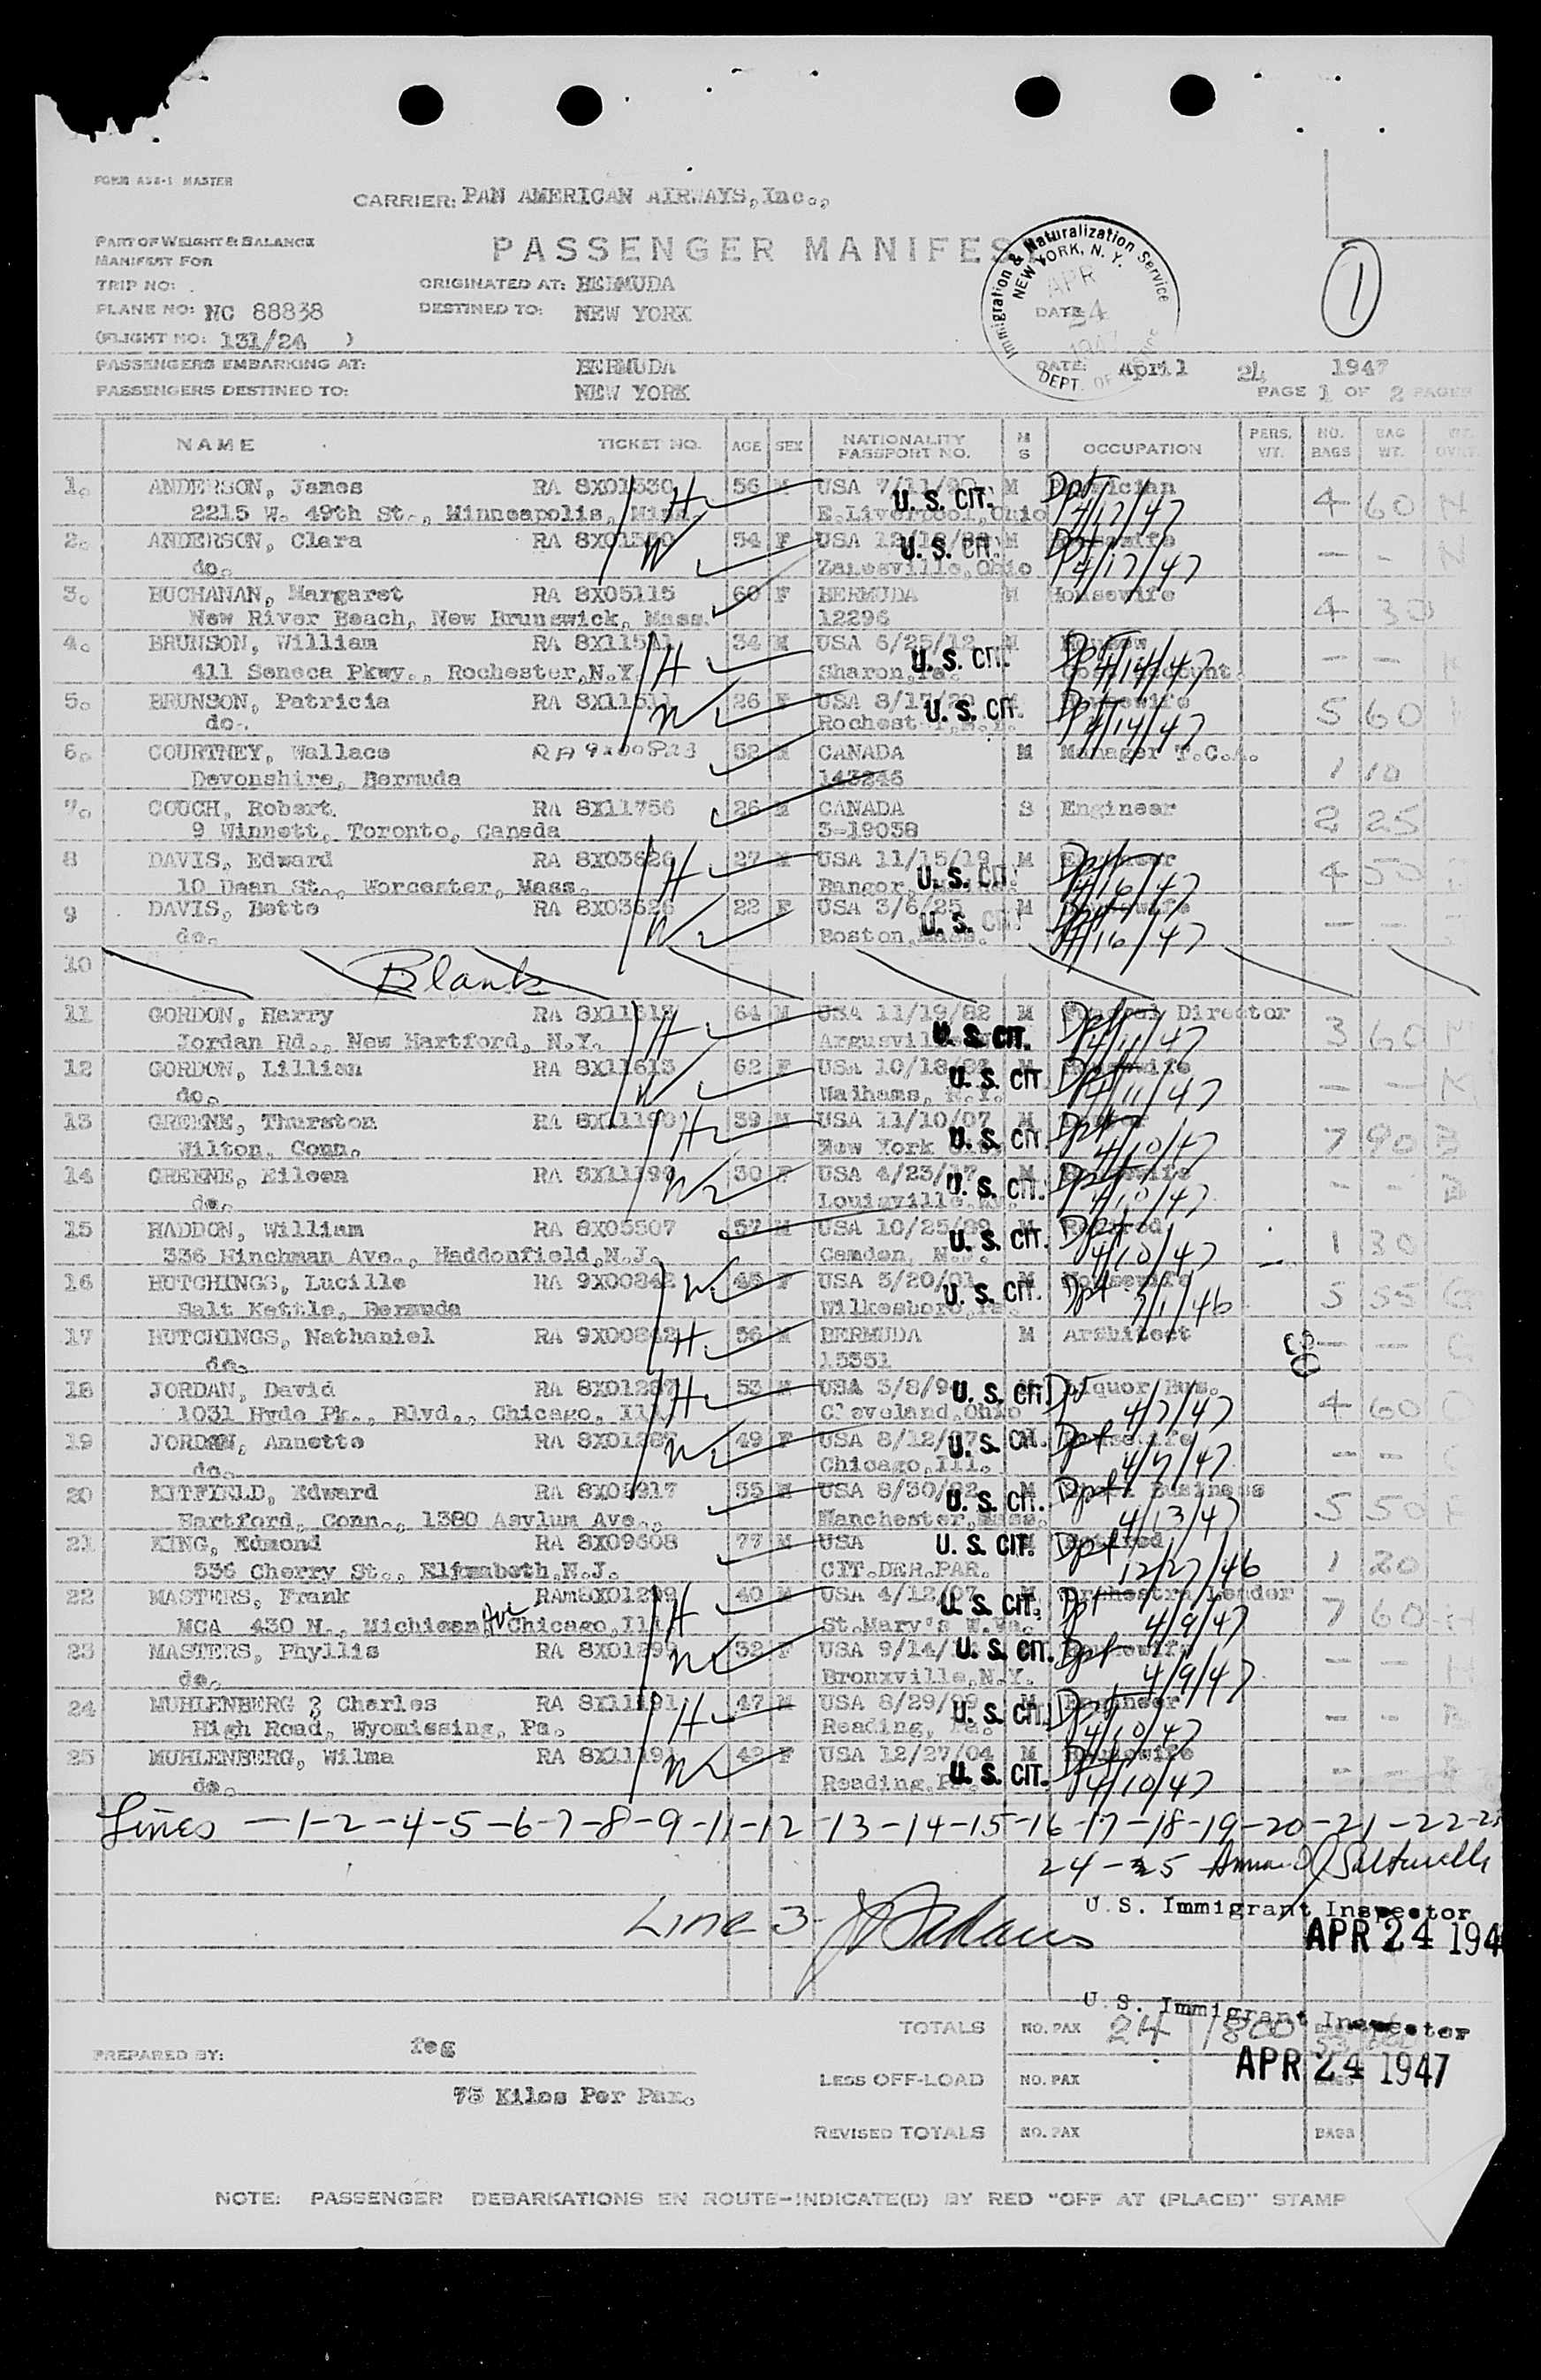 FORM ASS-1 MASTER
CARRIER: PAN AMERICAN AIRWAYS, Inc.,
PART OF WEIGHT & BALANCE
MANIFEST FOR
PASSENGER MANIFES
TRIP NO:
ORIGINATED AT: BERMUDA
PLANE NO: NC 88838
DESTINED TO: NEW YORK
(FLIGHT NO: 131/24 )
Immigration & Naturalization Service
NEW YORK, N. Y.
APR
DATE
24
1947
DEPT. OF
1
PASSENGERS EMBARKING AT: BERMUDA
DATE: April 24 1947
PASSENGERS DESTINED TO: NEW YORK
PAGE 1 OF 2 PAGES
NAME TICKET NO. AGE SEX NATIONALITY PASSPORT NO. M S OCCUPATION PERS. WT. NO. BAGS BAG WT.
1. ANDERSON, James RA 8X01530 H 56 M USA 7/11/90 M U. S. CIT. Dpt 4/17/47 4 60 N
2215 W. 49th St., Minneapolis, Minn. E.Liverpool, Ohio
2. ANDERSON, Clara RA 8X01530 W 54 F USA U. S. CIT. M Housewife 4/17/47 - - N
do. Zanesville, Ohio
3. BUCHANAN, Margaret RA 8X05115 60 F BERMUDA Housewife 4 30
New River Beach, New Brunswick, Mass. 12296
4. BRUNSON, William RA 8X11511 H 34 M USA 6/25/12 M U. S. CIT. Dpt 4/14/47 - -
411 Seneca Pkwy., Rochester, N.Y. Sharon, Pa.
5. BRUNSON, Patricia RA 8X11511 W 26 F USA U. S. CIT. Dpt Housewife 4/14/47 5 60
do. Rochest
6. COURTNEY, Wallace RA 52 M CANADA M Manager T.C.A. 1 10
Devonshire, Bermuda 143246
7. COUCH, Robert RA 8X11756 26 M CANADA S Engineer 2 25
9 Winnett, Toronto, Canada 3-19038
8 DAVIS, Edward RA 8X03626 H 27 M USA 11/15/19 M U. S. CIT. Dpt 4/16/47 4 50
10 Dean St., Worcester, Mass. Bangor,
9 DAVIS, Bette RA 8X03626 W 22 F USA 3/6/25 M U. S. CIT. Housewife 4/16/47 - -
do. Boston, Mass.
10 Blank
11 GORDON, Harry RA 8X11612 H 64 M USA 11/19/82 M U. S. CIT. Dpt Funeral Director 4/11/47 3 60
Jordan Rd., New Hartford, N.Y.
12 GORDON, Lillian RA 8X11613 W 62 F USA U. S. CIT Dpt Housewife 4/11/47 - - K
do.
13 GREENE, Thurston RA 8X11190 H 39 M USA 11/10/07 M U. S. CIT. Dpt 4/10/47 7 90 B
Wilton, Conn. New York
14 GREENE, Eileen RA 8X11190 W 30 F USA 4/23/17 M U. S. CIT. Dpt Housewife 4/10/47 - - B
do. Louisville,
15 HADDON, William RA 8X05507 57 M USA 10/25/89 M U. S. CIT. Dpt Retired 4/10/47 1 30
336 Hinchman Ave., Haddonfield, N.J. Camden, N.J.
16 HUTCHINGS, Lucille RA 9X00842 W 45 F USA 5/20/01 M U. S. CIT. Dpt Housewife 7/1/46 5 55 G
Salt Kettle, Bermuda Wilkesboro,
17 HUTCHINGS, Nathaniel RA 9X00842 H 56 M BERMUDA M Architect - - G
do. 13351
18 JORDAN, David RA 8X01287 H 53 M USA U. S. CIT. Dpt Liquor Bus. 4/7/47 4 60 C
1031 Hyde Pk., Blvd., Chicago, Ill. Cleveland, Ohio
19 JORDAN, Annette RA 8X01287 W 49 F USA U. S. CIT. Dpt Housewife 4/7/47 - - C
do. Chicago, Ill.
20 KITFIELD, Edward RA 55 M USA U. S. CIT. Dpt Business 4/13/47 5 50 F
Hartford, Conn., 1380 Asylum Ave., Manchester, Mass.
21 KING, Edmond RA 8X09608 77 M USA U. S. CIT. Dpt Retired 12/27/46 1 20
536 Cherry St., Elizabeth, N.J. CIT.DER.PAR.
22 MASTERS, Frank RA 8X01299 H 40 M USA 4/12/07 U. S. CIT. Dpt Orchestra Leader 4/9/47 7 60 H
MCA 430 N., Michigan Ave Chicago, Ill. St.Mary's W.Va.
23 MASTERS, Phyllis RA 8X01299 W 32 F USA 9/14/ U. S. CIT. Dpt Housewife 4/9/47 - - H
do. Bronxville, N.Y.
24 MUHLENBERG, Charles RA 8X11191 H 47 M USA 8/29/99 M U. S. CIT. Dpt Engineer 4/10/47 - - B
High Road, Wyomissing, Pa. Reading, Pa.
25 MUHLENBERG, Wilma RA 8X11191 W 42 F USA 12/27/04 M U. S. CIT. Dpt Housewife 4/10/47 - -
do. Reading, Pa.
Lines - 1-2-4-5-6-7-8-9-11-12-13-14-15-16-17-18-19-20-21-22-23
24-25
U. S. Immigrant Inspector
APR 24 194
Line 3-
U. S. Immigrant Inspector
APR 24 1947
TOTALS NO. PAX 24 1800
PREPARED BY: feg
LESS OFF-LOAD NO. PAX
75 Kilos Per Pax.
REVISED TOTALS NO. PAX BAGS
NOTE: PASSENGER DEBARKATIONS EN ROUTE-INDICATE(D) BY RED "OFF AT (PLACE)" STAMP